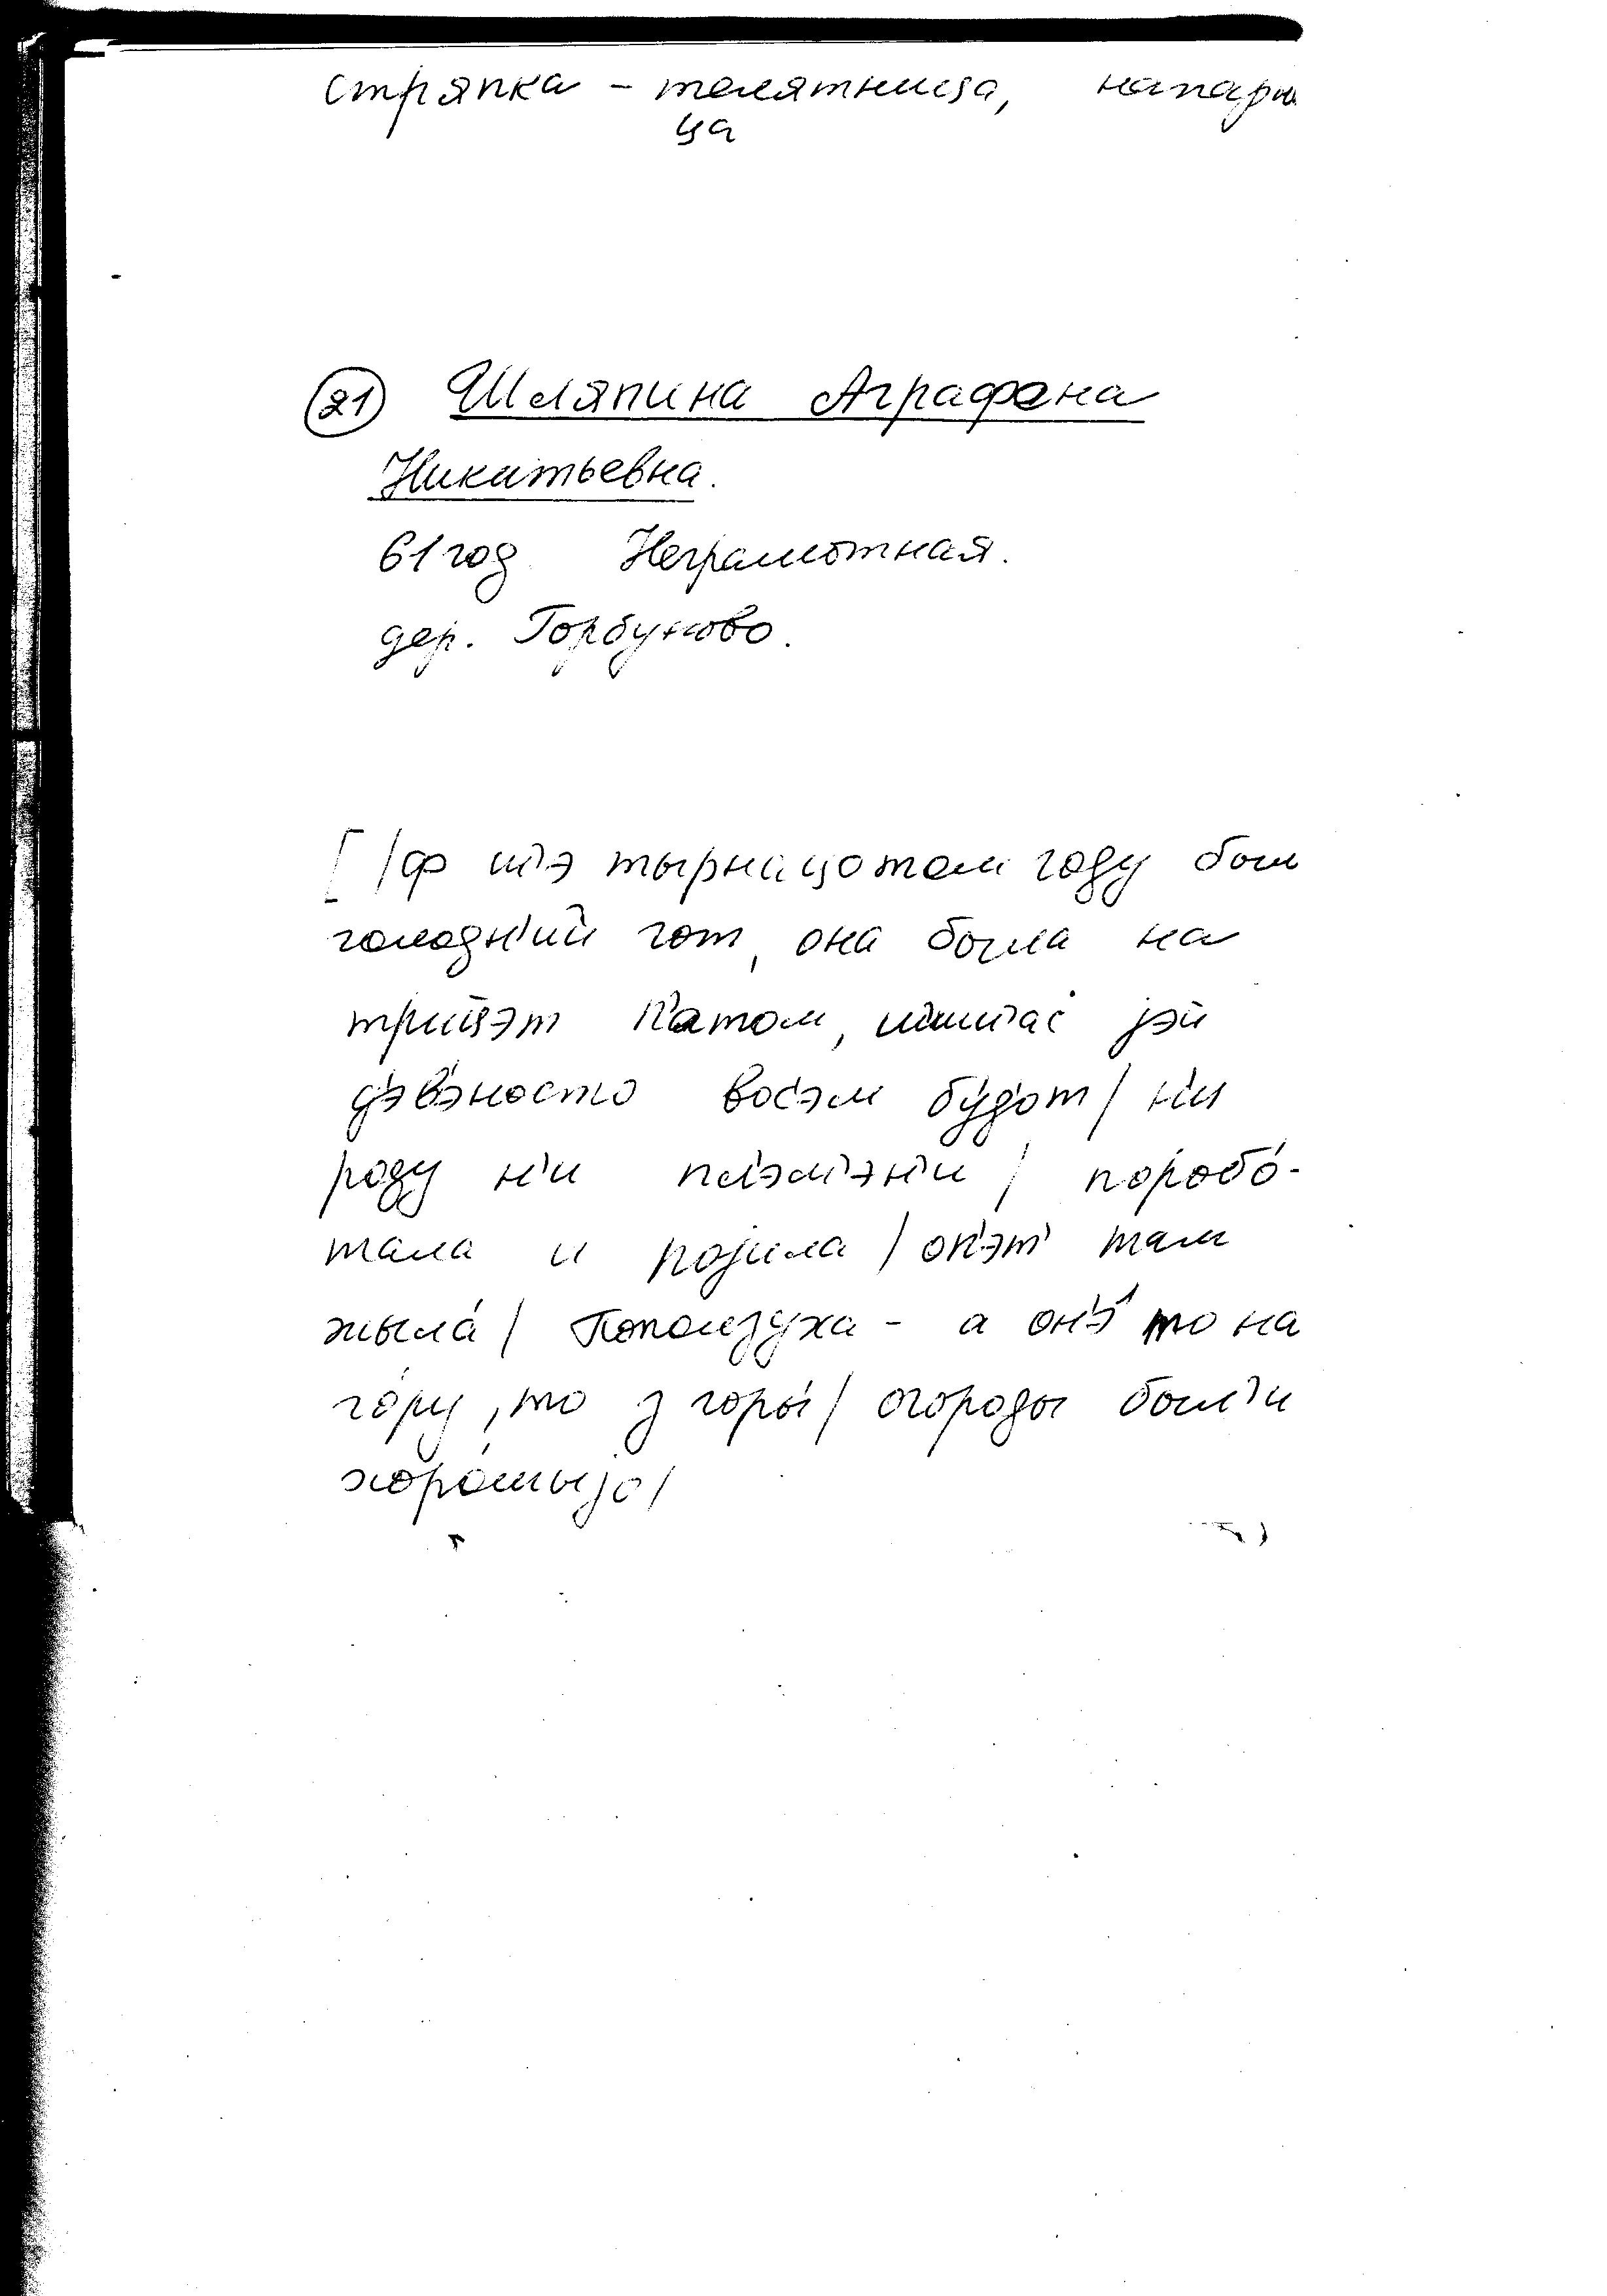 стряпка - телятница, напарни
ца
21 Шляпина Аграфена
Никитьевна.
61 год Неграмотная.
дер. Горбуново.
[ /ф ш'э тырнацотом году был
голодн'ий гот, она была на
трицэт п'атом, jэй
д'эв'эносто вос'эм буд'от / н'и
роду н'и пл'эм'эн'и / поробо́-
тала и појила / оп'эт' там
жыла́ / Поползуха - а он'э́ то на
го́ру, то з горы́ / огороды был'и
хоро́шыјо /